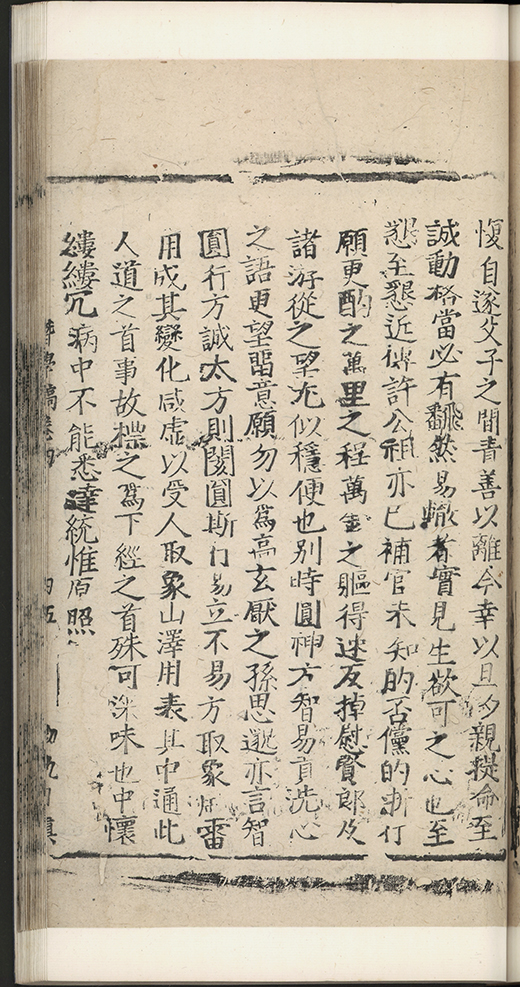 愎自遂父子之間責善以離今幸以旦夕親挺命至
誠動格當必有飜然易轍者實見生欲可之心也至
懇至懇近傳許公祖亦已補官未知的否儻的東行
願更酌之萬里之程萬金之軀得迷反掉慰賢郎及
諸游從之望尤似穩便也別時圓神方智易貢洗心
之語更望畱意願勿以爲高玄厭之孫思邈亦言智
圓行方誠太方則閡圓斯行易立不易方取象於雷
用成其變化咸虛以受人取象山澤用表其中通此
人道之首事故標之爲下經之首殊可深味也中懷
縷縷冗病中不能悉達統惟原照